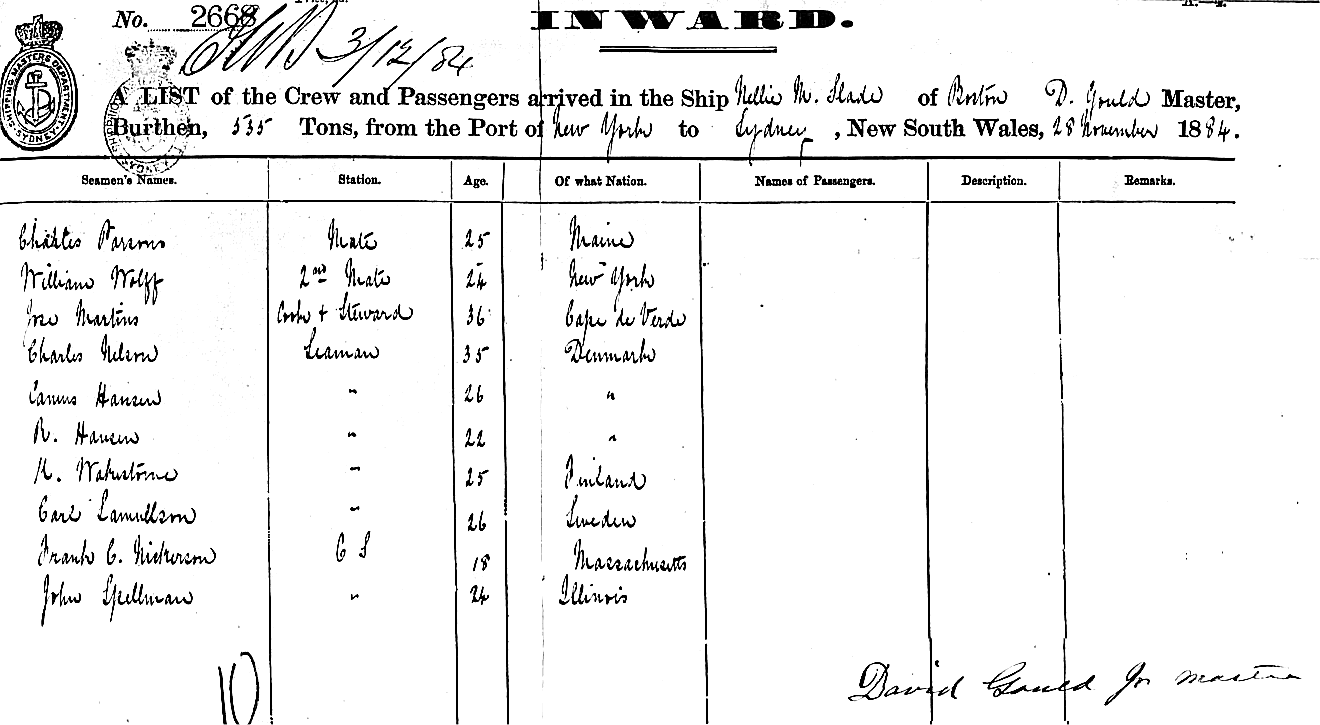 No. 2668
INWARD.
3/12/84
SHIPPING MASTERS DEPARTMENT SYDNEY
A LIST of the Crew and Passengers arrived in the Ship Nellie M. Slade of Boston D. Gould Master,
Burthen, 535 Tons, from the Port of New York to Sydney, New South Wales, 28 November 1884.
Seamen's Names. Station. Age. Of what Nation. Names of Passengers. Description. Remarks.
Charles Parsons Mate 25 Maine
William Wolff 2nd Mate 24 New York
Jose Martins Cook + Steward 36 Cape de Verde
Charles Nelson Seaman 35 Denmark
Hansen " 26 "
R. Hansen " 22 "
" 25 Finland
Carl Samullson " 26 Sweden
Frank C. Nickerson O S 18 Massachusetts
John Spellman " 24 Illinois
10
David Gould Jr master